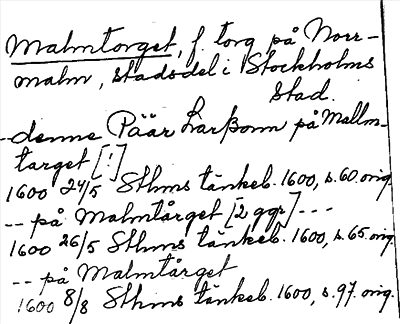 Malmtorget, f. torg på Norr-
malm, stadsdel i Stockholms
stad.
- denne Päär Larßonn på Mallm-
target [!]
1600 24/5 Sthms tänkeb. 1600, s. 60. orig.
-- på Malmtårget [2 ggr] ---
1600 26/5 Sthms tänkeb. 1600, s. 65. orig.
-- på Malmtårget
1600 8/8 Sthms tänkeb. 1600, s. 97. orig.